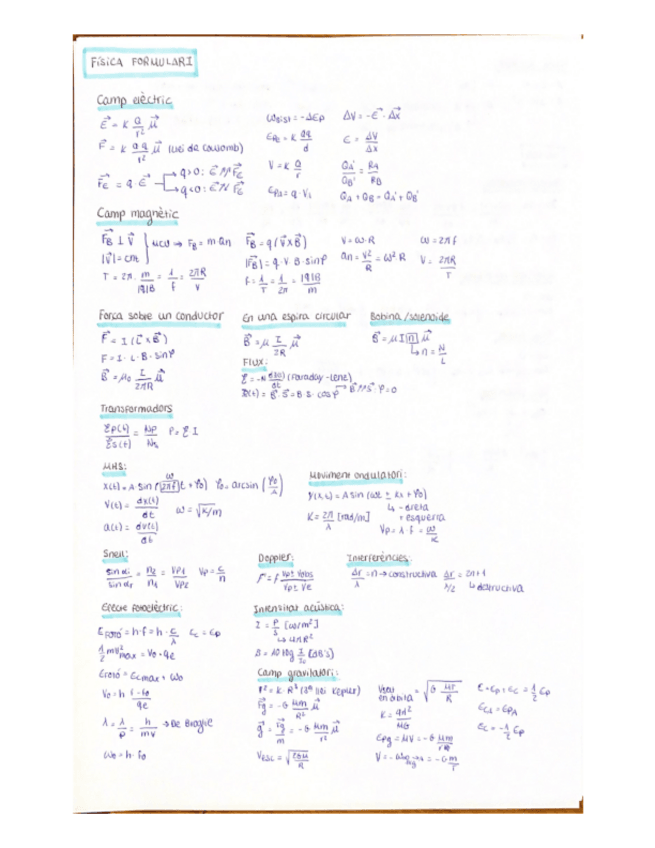 FÍSICA FORMULARI
Camp elèctric
E⃗ = K Q/r² μ⃗
F⃗ = K Q q/r² μ⃗ (Llei de Coulomb)
F⃗e = q · E⃗ → q>0: E⃗ // F⃗e
→ q<0: E⃗ // F⃗e
= -ΔEp
Epe = K Qq/d
V = K Q/r
ΔV = -E⃗ · Δx⃗
E = ΔV/Δx
QA'/QB' = RA/RB
QA + QB = QA' + QB'
Camp magnètic
F⃗B ⊥ V⃗
|V⃗| = cnt
MCU → FB = m an
T = 2π · m/|q|B = 1/f = 2πR/V
F⃗B = q (V⃗ x B⃗)
|F⃗B| = q · V · B · sin φ
V = ω · R
an = V²/R = ω² R
ω = 2πf
V = 2πR/T
Força sobre un conductor
F⃗ = I (L⃗ x B⃗)
F = I · L · B · sin φ
B⃗ = μ₀ I/2πR μ⃗
En una espira circular
B⃗ = μ I/2R μ⃗
Flux:
(Faraday-Lenz)
Φ(t) = B⃗ · S⃗ = B · S · cos φ → B⃗ // S⃗: φ=0
Bobina / solenoide
B⃗ = μ I n μ⃗
↳ n = N/L
Transformadors
εp(t)/εs(t) = Np/Ns P = ε I
MHS:
x(t) = A sin (2πf t + φ₀)
V(t) = dx(t)/dt ω = √K/m
a(t) = dv(t)/dt
Moviment ondulatori:
y(x,t) = A sin (ωt ± Kx + φ₀)
↳ - dreta
+ esquerra
K = 2π/λ [rad/m]
Vp = λ · f = ω/K
Snell:
sin αi/sin αr = n2/n1 = Vp1/Vp2 Vp = c/n
Doppler:
f' = f Vp ± Vobs/Vp ± Ve
Interferències:
Δr/λ = n → constructiva Δr/λ/2 = 2n+1
↳ destructiva
Efecte fotoelèctric:
E FOTÓ = h · f = h · c/λ Ec = Ep
1/2 mV²max = V₀ · qe
Efotó = Ec max + W₀
V₀ = h f-f₀/qe
= h/mv → De Broglie
W₀ = h · f₀
Intensitat acústica:
I = P/S [W/m²]
↳ 4πR²
B = 10 log I/I₀ [dB's]
Camp gravitatori:
T² = K · R³ (3ª llei Kepler)
F⃗g = -G Mm/R² μ⃗
g⃗ = F⃗g/m
Vesc = √2GM/R
= √G MT/R
K = 4π²/MG
E = Ep + Ec = 1/2 Ep
Ec = -1/2 Ep